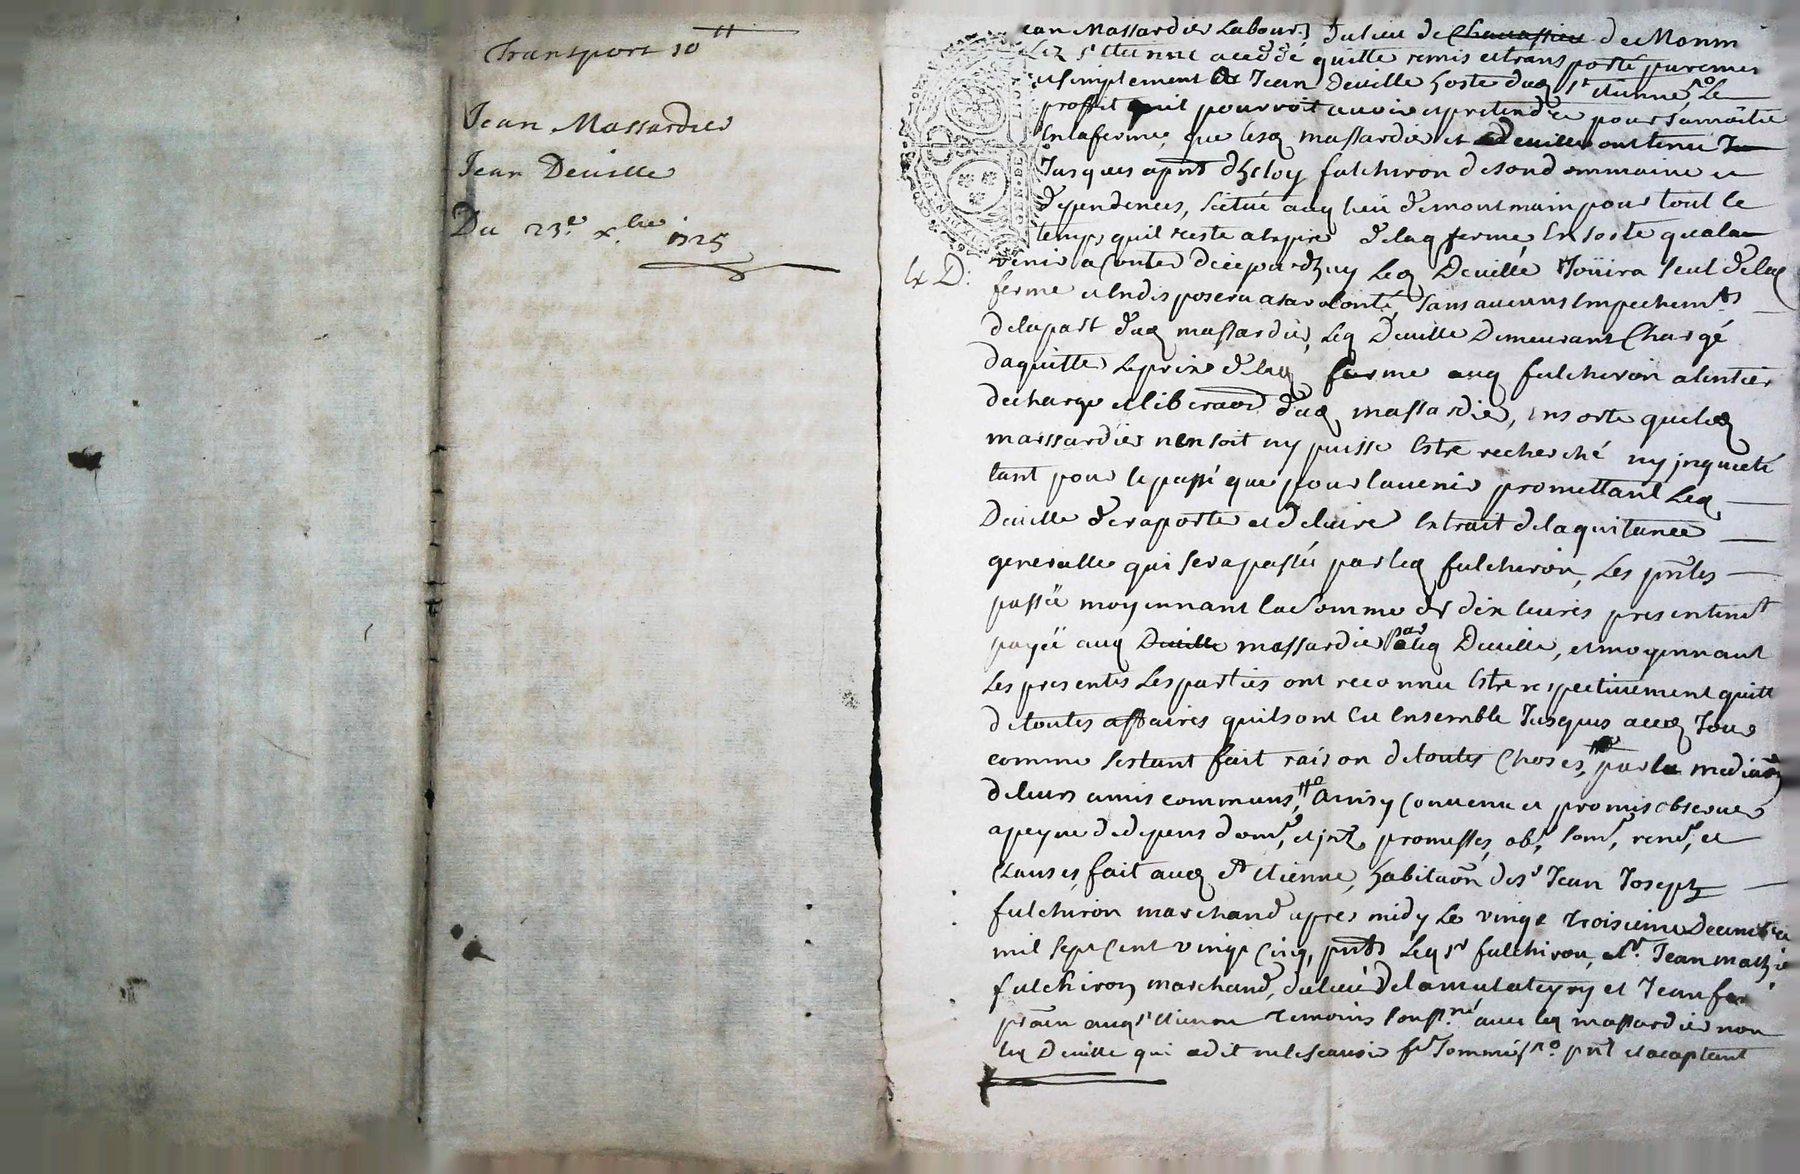 Transport 10#
Jean Massardier
Jean Deville
Du 23.e x.bre 1725
Ex D.
Jean Massardier Labour.r du lieu de Chavassieu de Monm
Lez St etienne a ceddé quitte remis et transporté purement
et simplement a Jean Deville hoste dud St etienne, le
proffit quil pourroit avoir et pretendre pour sa moitie
En la ferme, que lesd massardier et Deville ont tenu Ju
Jusques a pnt d'heloy fulchiron de son dommaine et
dependences, scitué aud lieu de montmain pour tout le
temps qui reste a expirer de lad ferme, En sorte qua la
venir a Conter dicepardhuy Led Deville Joüira seul de lad
ferme et En disposera a sa volonté, sans aucuns Empechemts
de la part dud massardier, Led Deville Demeurant Chargé
daquitter le prix de lad ferme aud fulchiron a l'entier
decharge et liberaon dud massardier, En sorte que led
massardier n'en soit ny puisse Estre recherché ny jnquieté
tant pour le passé que pour lavenir promettant Led
Deville de raporter et deluire Extrait de la quitance
generalle qui sera passée par led fulchiron, Les pntes
passée moyennant la Somme de dix livres presentemt
payée aud Deville massardier par led Deville, et moyennant
Les presentes Les parties ont reconnu Estre respectivement quitt
de toutes affaires quils ont Eu Ensemble Jusques a ced Jour
comme sestant fait raison de toutes Choses, par la mediaon
de leurs amis communs, Ainsy Convenu et promis observer
a peyne de depens dom., et jnt, promesses, ob., soum., ren., et
Clauses, fait aud St etienne, habitaon de sr Jean Joseph
fulchiron marchand apres midy Le vingt troisieme Decembre
mil sept Cent vingt Cinq, pnts Led sr fulchiron, et sr Jean mathie
fulchiron marchand, du lieu de la mulateyry et Jean
aud St etienne temoins soussnés avec led massardier non
led Deville qui a dit ne le scavoir, de ce sommé, pnt et aceptant